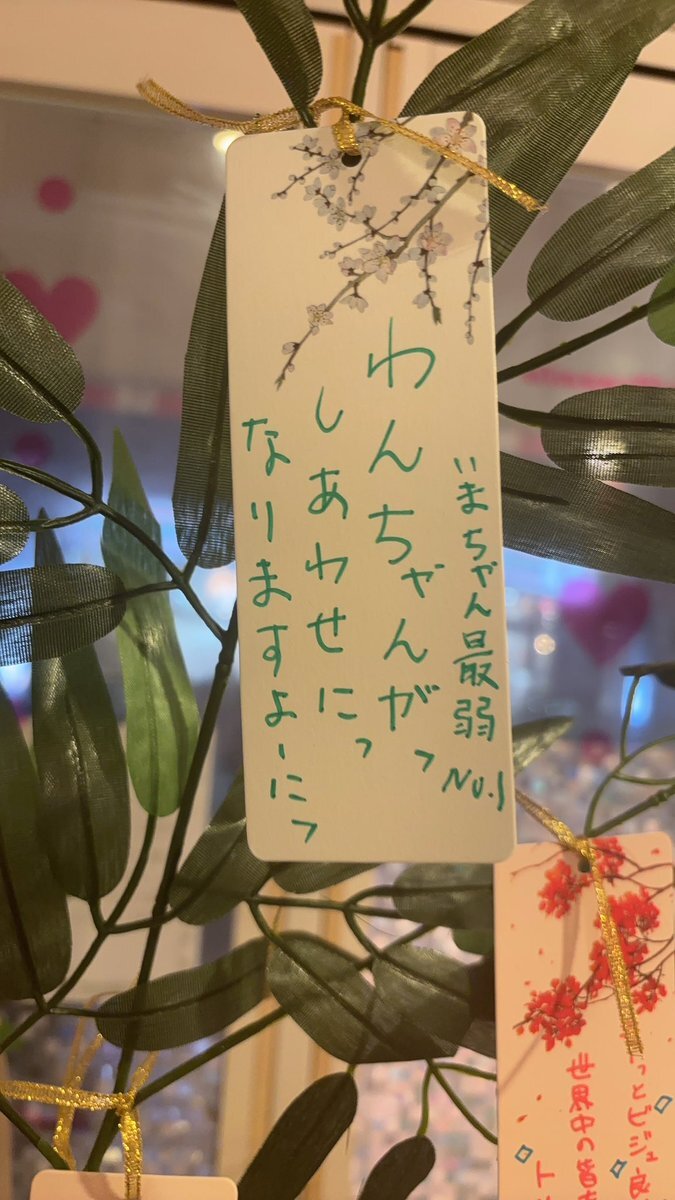 いまちゃん最弱 No.1
わんちゃんがっ
しあわせにっ
なりますよーにっ
っとビジュ良
世界中の皆
ト